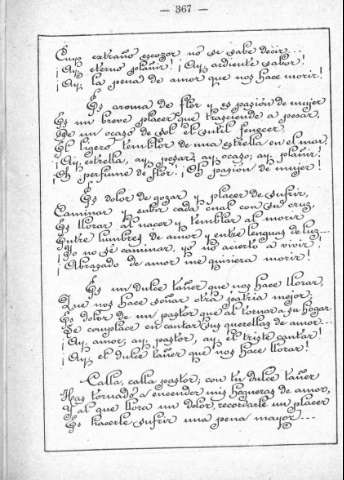 — 367 —
Cuyo extraño escozor no se sabe decir...
¡Ay, eterno plañir! ¡Ay, ardiente sabor!
¡Ay, la pena de amor que nos hace morir!
Es aroma de flor y es pasión de mujer
Es un breve placer que trasciende a pesar,
de un ocaso de sol el sutil fenecer
El ligero temblor de una estrella en el mar,
¡Ay, estrella, ay, pesar, ay, ocaso, ay, plañir!
¡Ay perfume de flor! ¡Ay pasión de mujer!
Es dolor de gozar y placer de sufrir,
Caminar y subir cada cual con su cruz,
Es llorar al nacer y temblar al morir
Entre lumbres de amor y entre lenguas de luz...
¡Yo no sé caminar, yo no acierto a vivir
¡Abrazado de amor me quisiera morir!
Es un dulce tañer que nos hace llorar,
Que nos hace soñar otra patria mejor,
Es dolor de un pastor que al tornar a su hogar
Se complace en cantar sus querellas de amor...
¡Ay, amor, ay, pastor, ay el triste cantar!
¡Ay, el dulce tañer que nos hace llorar!
Calla, calla pastor, con tu dulce tañer
Has tornado a encender mis hogueras de amor,
Y al que llora un dolor, recordarle un placer
Es hacerle sufrir una pena mayor...